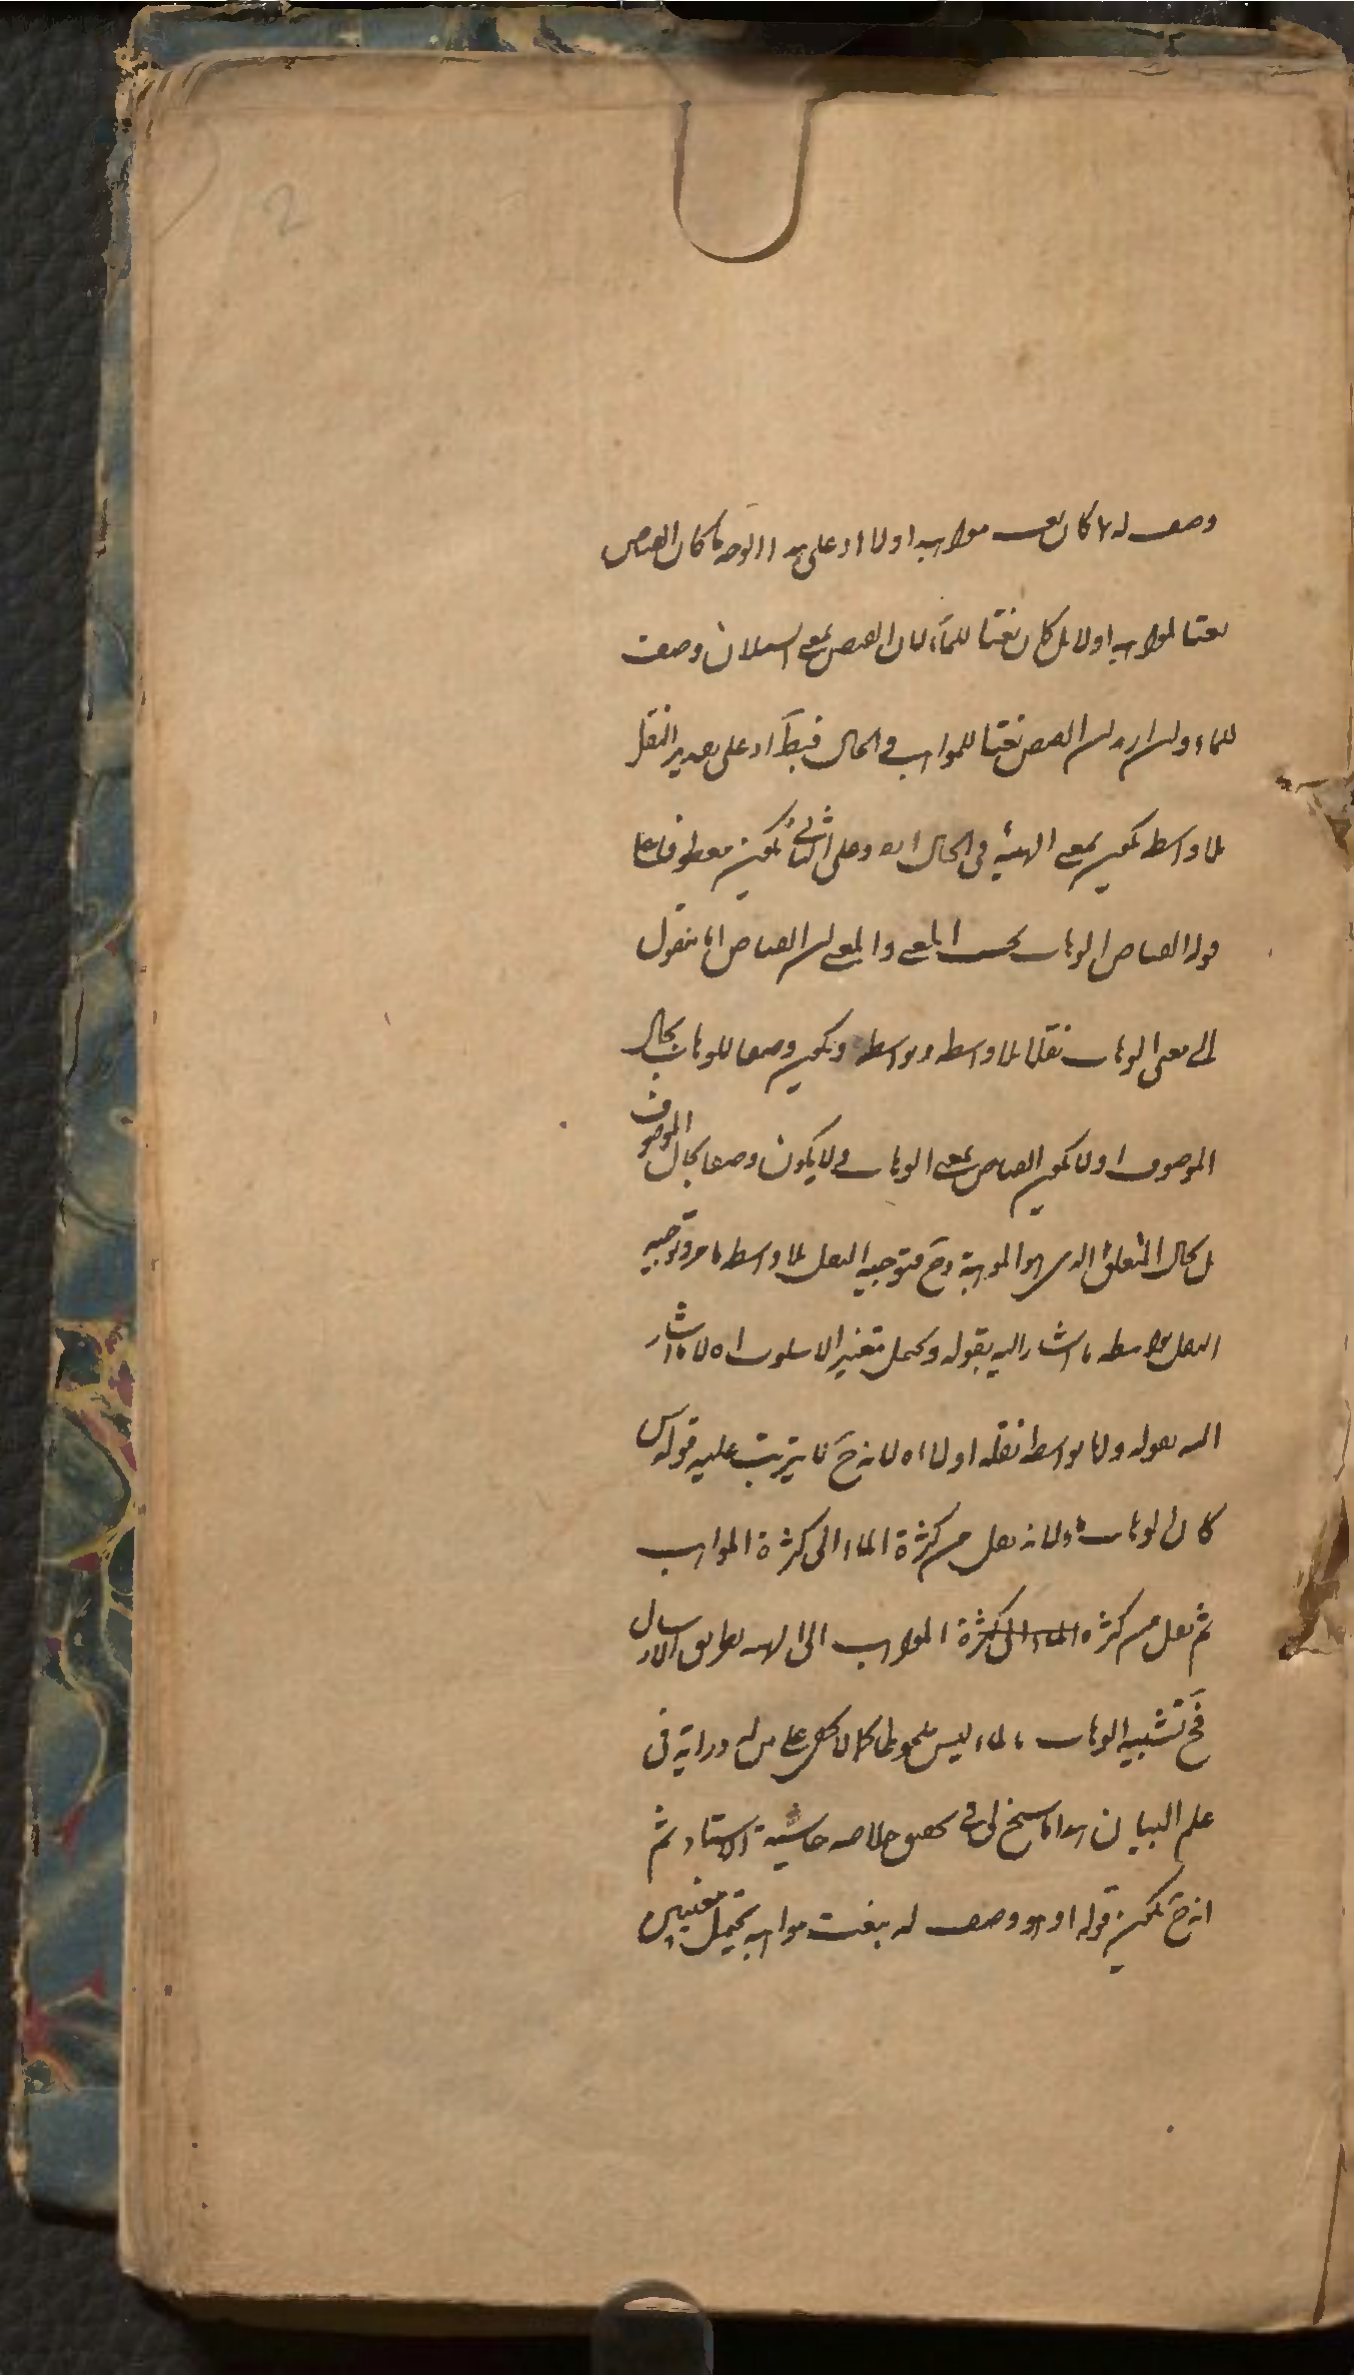 2
وصف له لا كان نعت مواهبه اولا اذ على هذا الوجه ما كان الفياض
نعتا لمواهبه اولا بل كان نعتا للماء لان الفيض بمعنى السيلان وصف
للماء وان اريد ان الفيض نعتا للمواهب في الحال فبطل اذ على تقدير النقل
بلا واسطة يكون بمعنى الهبة في الحال وعلى الثاني يكون معطوفا على
قوله الفياض الوهاب بحسب المعنى والمعنى ان الفياض اما منقول
الى معنى الوهاب نقلا بلا واسطة وبواسطة ويكون وصفا للوهاب بحال
الموصوف اولا يكون الفياض بمعنى الوهاب ولا يكون وصفا بحال الموصوف
بل بحال المتعلق الذي هو الموهبة وح فتوجيه النقل بلا واسطة ما مر وتوجيه
النقل بواسطة ما اشار اليه بقوله ويحمل تغيير الاسلوب اه لا ما اشار
اليه بقوله واما بواسطة نقله اولا اه لانه ح لا يترتب عليه قوله
كان الوهاب ولانه نقل من كثرة الماء الى كثرة المواهب
ثم نقل من كثرة الماء الى كثرة المواهب الى الهبة بطريق الارسال
فح تشبيه الوهاب بالماء ليس ملحوظا كما لا يخفى على من له دراية في
علم البيان هذا ما سنح لى في تحقيق خلاصة حاشية الاستاد ثم
انه ح يكون قوله او هو وصف له بنعت مواهبه يحتمل معنيين